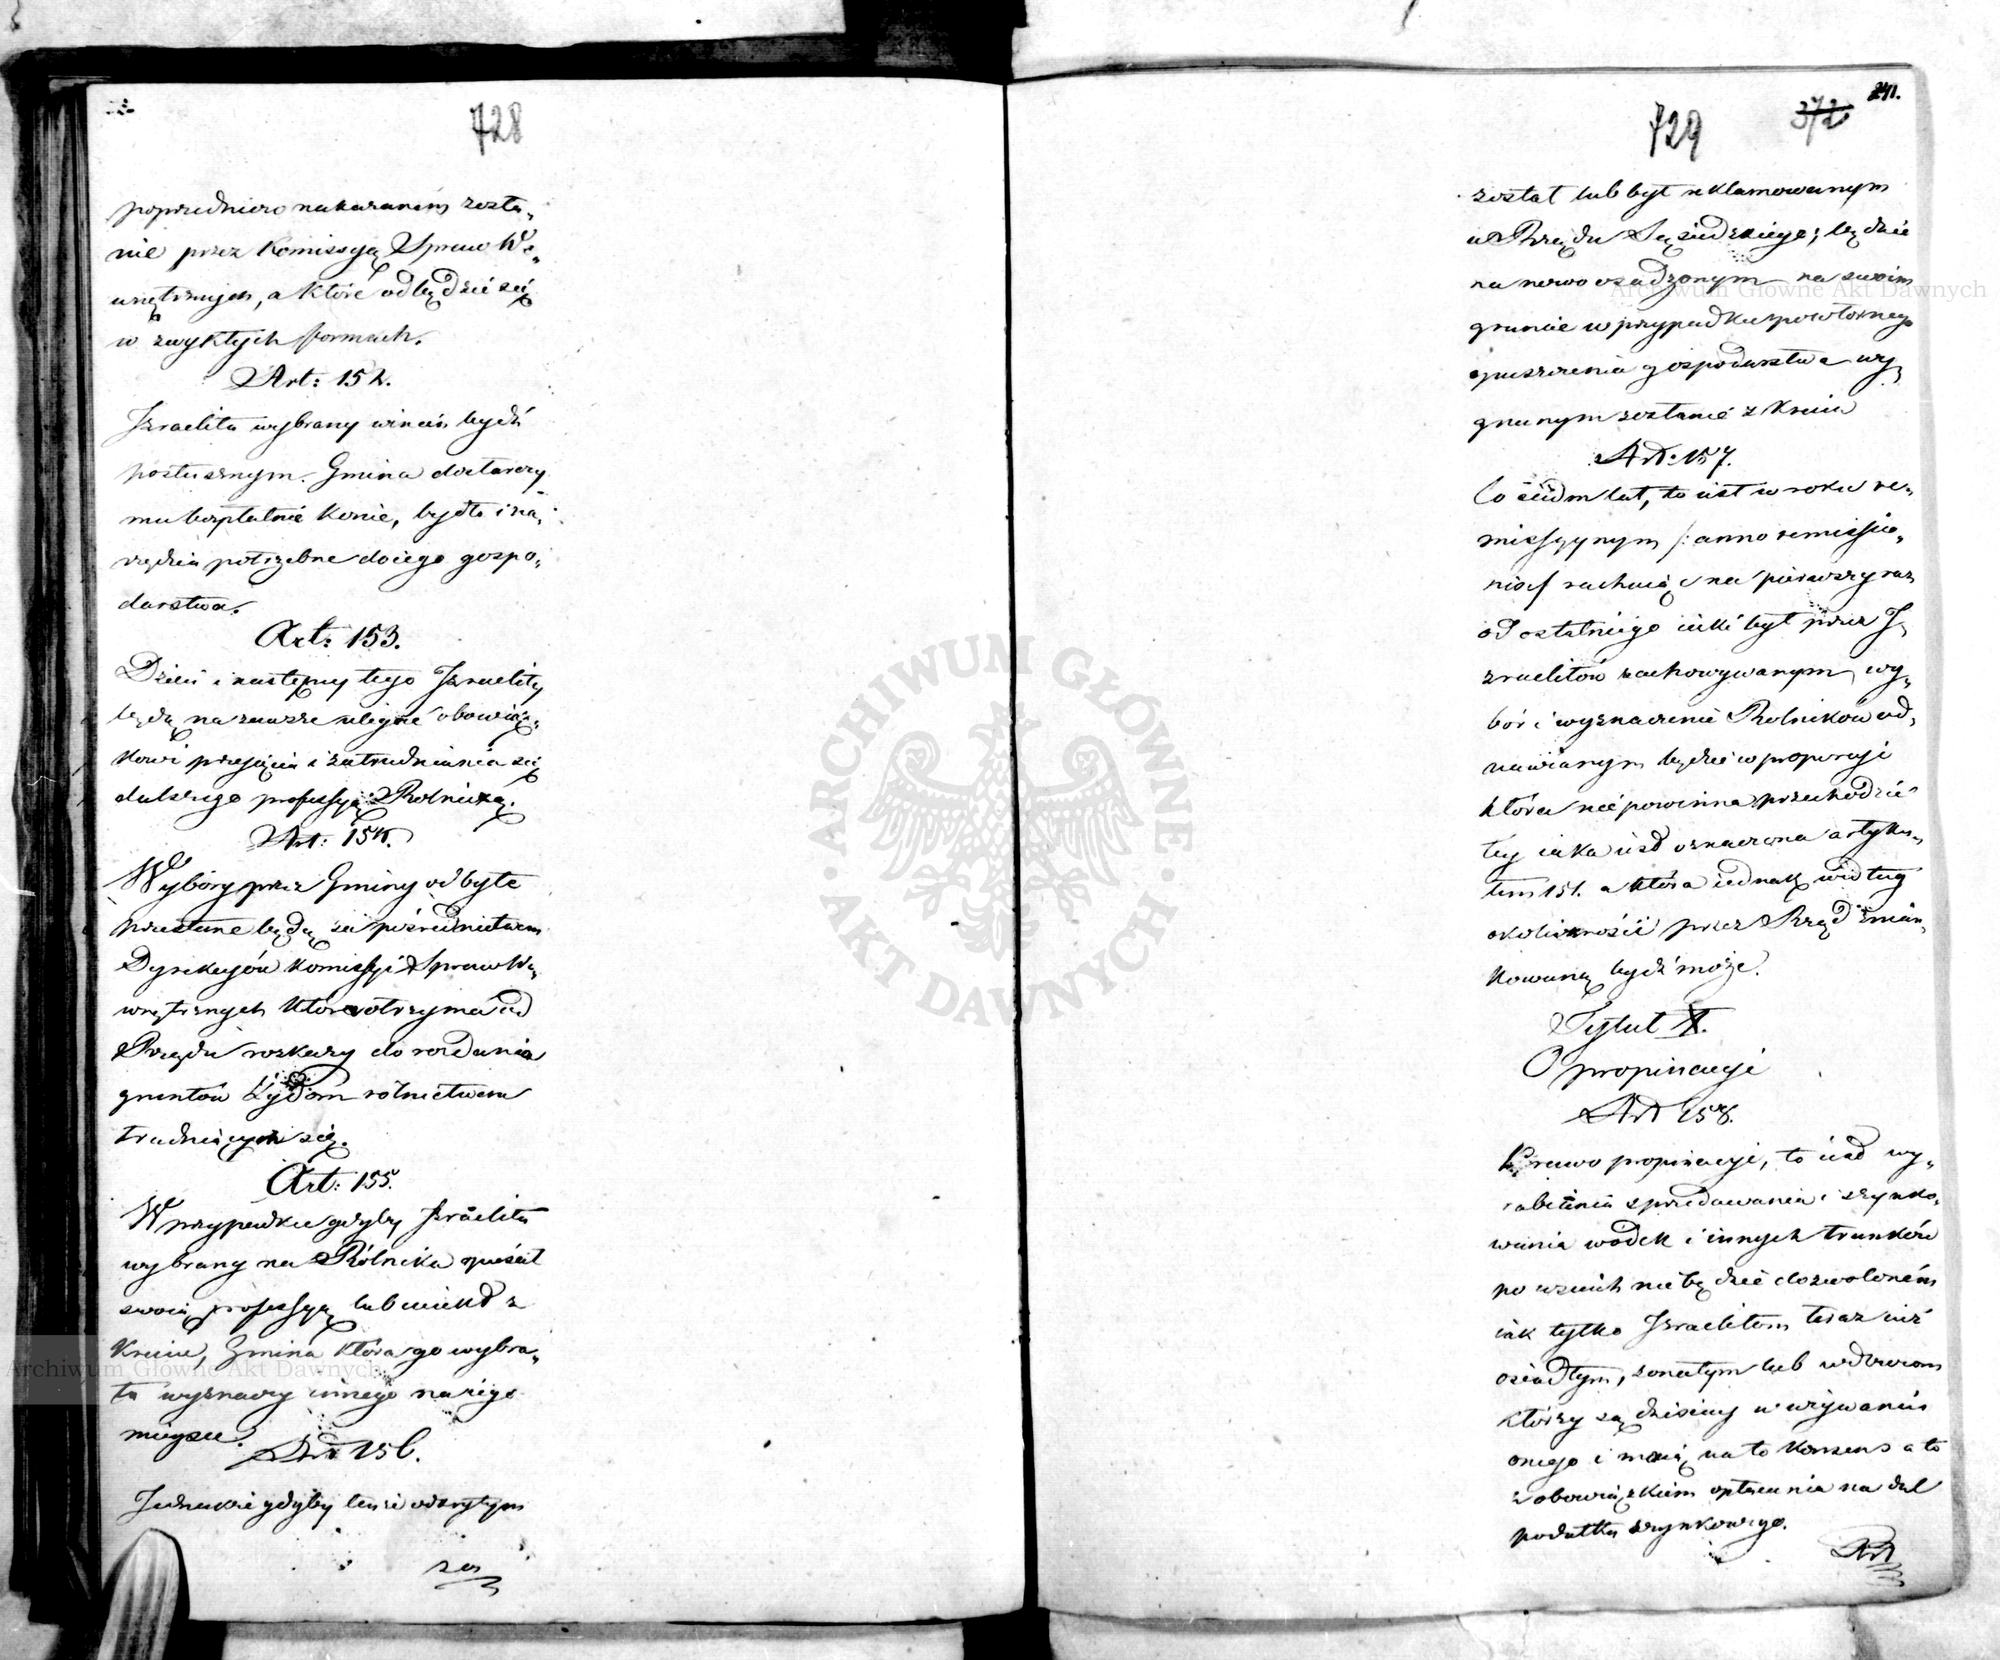 728
poprzedniczo nakazanem zosta„
nie przez Kommissyą Spraw We„
wnętrznych, a które odbędzie się
w zwykłych formach.
Art: 152.
Izraelita wybrany winień bydź
posłusznym. Gmina dostarczy
mu bezpłatnie konie, bydło i na„
rzędzia potrzebne do iego gospo„
darstwa.
Art: 153.
Dzieci i następcy tego Izraelity
będą na zawsze uległe obowiąz„
kowi przejęcia i zatrudniania się
dalszego professyą Rolniczą.
Art: 154.
Wybory przez Gminy odbyte
przesłane będą za pośrednictwem
Dyrekcyów Komissyi Spraw We„
wnętrznych które otrzyma od
Rządu rozkazy do rozdania
gruntów Żydom rolnictwem
trudniącym się.
Art: 155.
W przypadku gdyby Izraelita
wybrany na Rólnika opuścił
swoią professyą lub uciekł z
Kraiu, Gmina która go wybra„
ła wyznaczy innego na iego
mieysce.
Art 156.
Jednakże gdyby tenże odkrytym
zos
241.
372
729
został lub był reklamowanym
u Rządu Sąsiedzkiego; będzie
na nowo osadzonym na swoim
gruncie w przypadku powtórnego
opuszczenia gospodarstwa wy„
gnanym zostanie z Kraiu
Art: 157.
Co siedm lat, to iest w roku re„
missyynym /: anno remissio„
nis :/ rachuiąc na pierwszy raz
od ostatniego iaki był przez I„
zraelitów zachowywanym, wy„
bór i wyznaczenie Rolników od„
nawianym będzie w proporcyi
która nie powinna przechodzić
tey iaka iest oznaczona artyku„
łem 151. a która iednak według
okoliczności przez Rząd zmian„
kowaną bydź może.
Tytuł X.
O propinacyi
Art 158.
Prawo propinacyi, to iest wy„
rabiania sprzedawania i szynko„
wania wódek i innych trunków
po wsiach nie będzie dozwolonem
iak tylko Izraelitom teraz iuż
osiadłym, żonatym lub wdowcom
którzy są dzisiay w używaniu
onego i maią na to konsens a to
z obowiązkiem opłacania na dal
podatku szynkowego.
Art
Archiwum Główne Akt Dawnych
Archiwum Główne Akt Dawnych
ARCHIWUM GŁÓWNE
AKT DAWNYCH